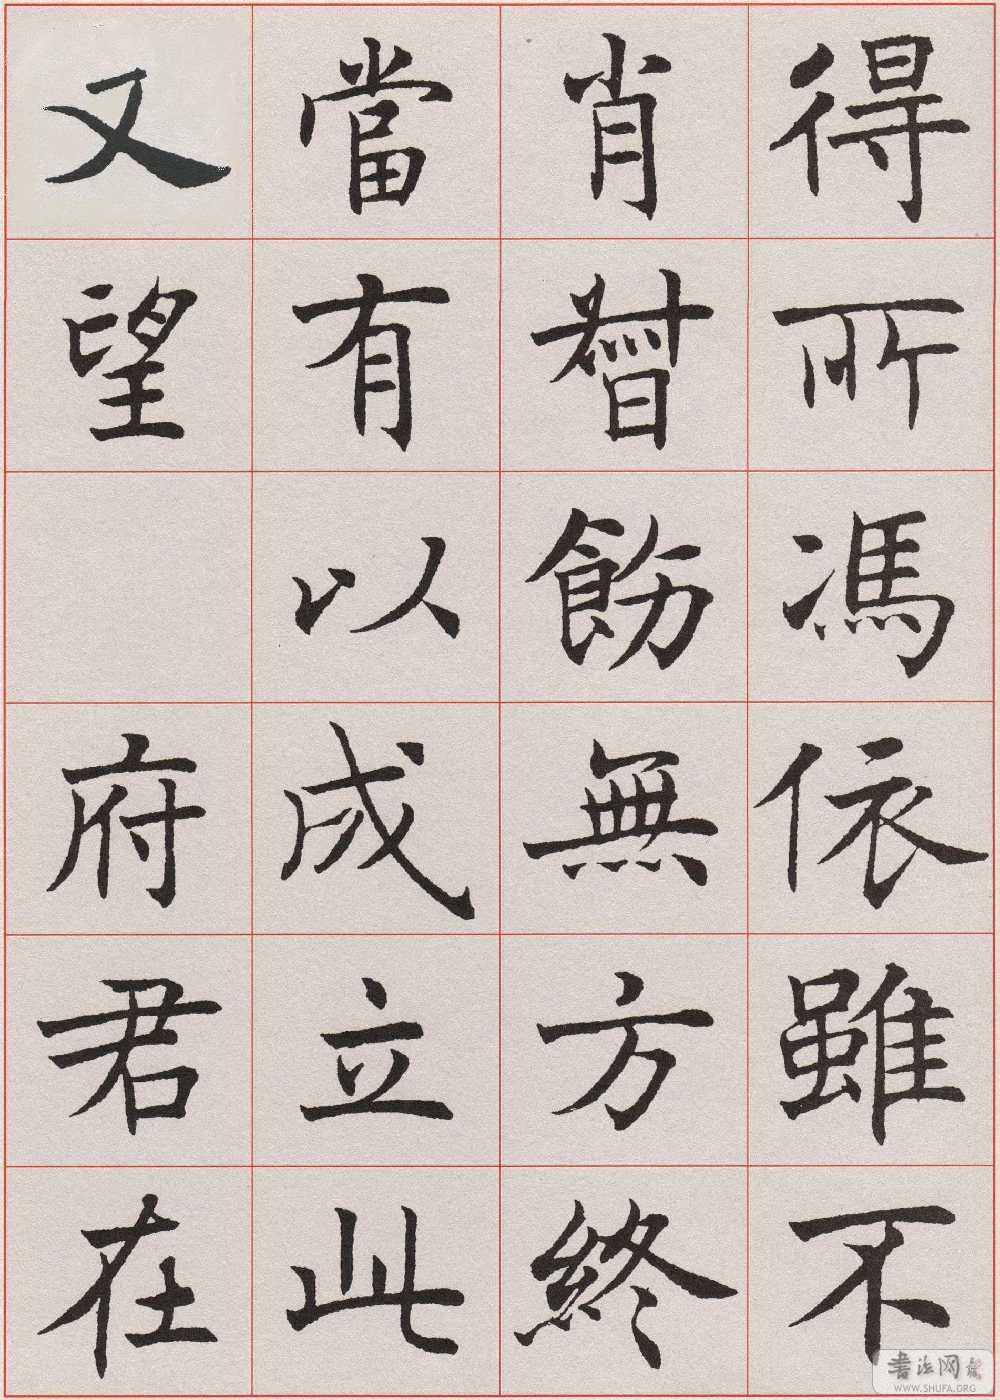 得所馮依雖不
肖督飭無方終
當有以成立此
又望 府君在
書法网
WWW.SHUFA.ORG